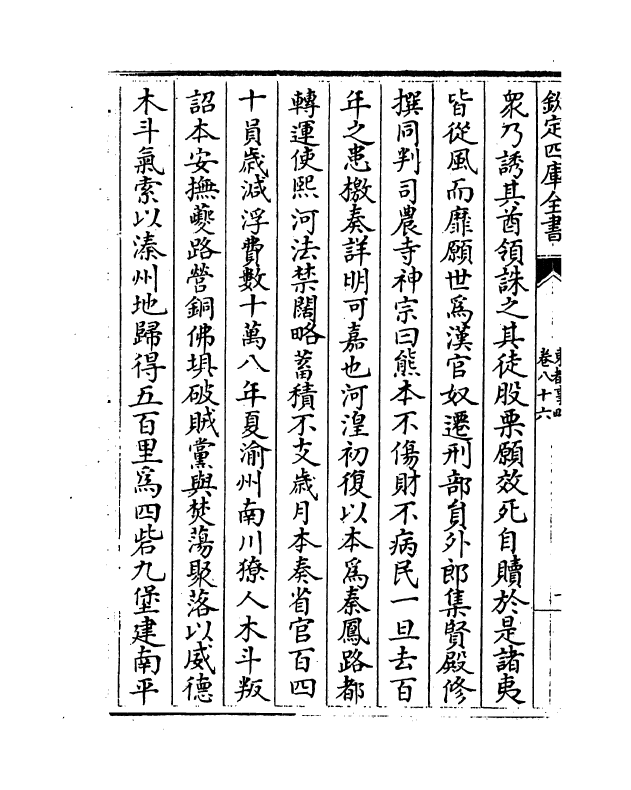 欽定四庫全書
東都事略
卷八十六
衆乃誘其酋領誅之其徒股栗願效死自贖於是諸夷
皆從風而靡願世為漢官奴遷刑部員外郎集賢殿修
撰同判司農寺神宗曰熊本不傷財不病民一旦去百
年之患檄奏詳明可嘉也河湟初復以本為秦鳳路都
轉運使熙河法禁闊略蓄積不支歲月本奏省官百四
十員歲減浮費數十萬八年夏渝州南川獠人木斗叛
詔本安撫夔路營銅佛垻破賊黨與焚蕩聚落以威德
木斗氣索以溱州地歸得五百里為四砦九堡建南平